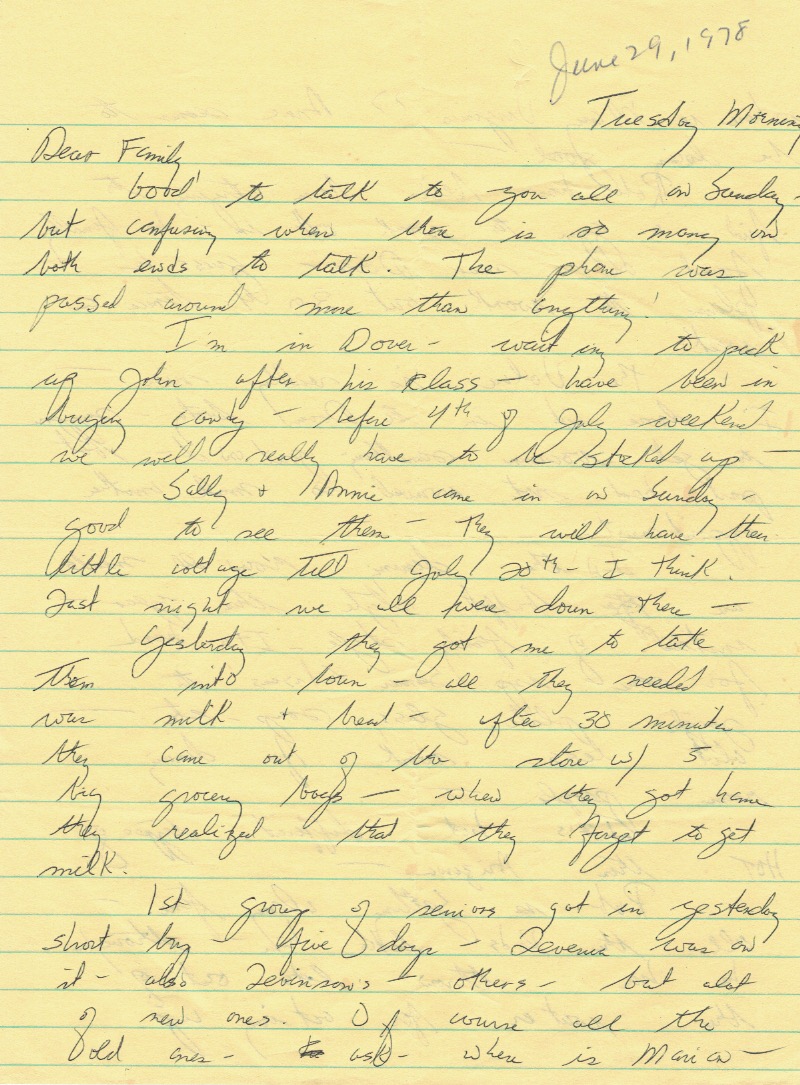 June 29, 1978
Tuesday Morning
Dear Family
Good to talk to you all on Sunday -
but confusing when there is so many on
both ends to talk. The phone was
passed around more than anything!
I'm in Dover - waiting to pick
up John after his class - have been in
buying candy - before 4th of July weekend
we will really have to be stocked up -
Sally + Annie came in on Sunday -
good to see them - They will have their
little cottage till July 20th - I think.
Last night we all were down there -
Yesterday they got me to take
them into town - all they needed
was milk + bread - after 30 minutes
they came out of the store w/ 5
big grocery bags - when they got home
they realized that they forgot to get
milk.
1st group of seniors got in yesterday
short by - five days - was on
it - also Levinson's - others - but alot
of new ones. Of course all the
old ones - ask - where is Marian -